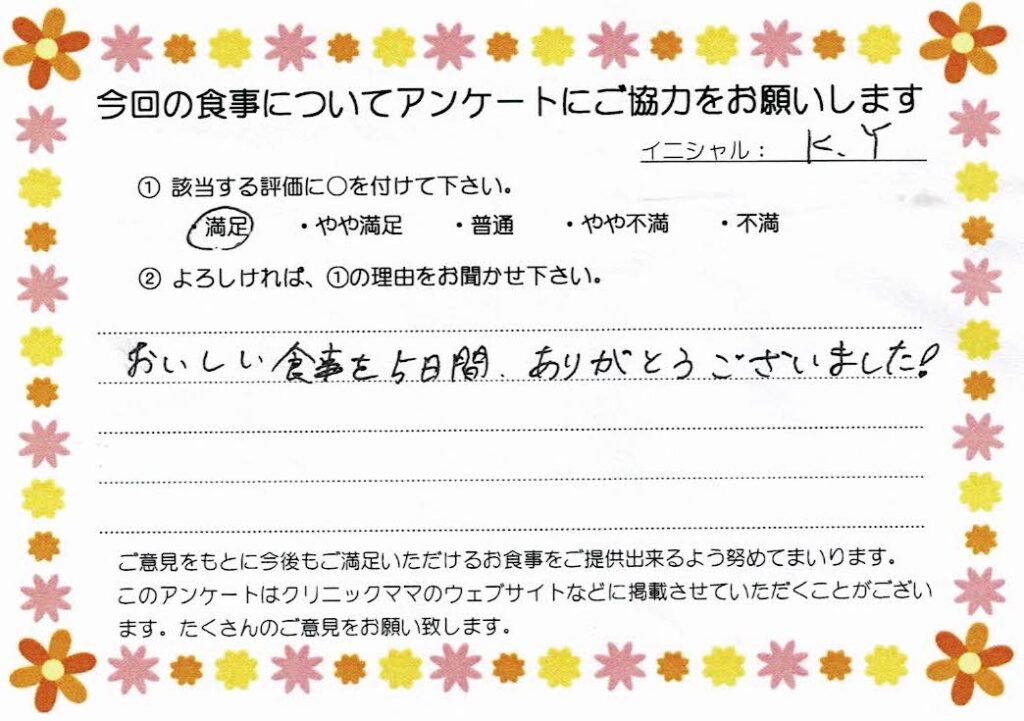 今回の食事についてアンケートにご協力をお願いします
イニシャル： K.Y
① 該当する評価に○を付けて下さい。
・満足 ・やや満足 ・普通 ・やや不満 ・不満
② よろしければ、①の理由をお聞かせ下さい。
おいしい食事を5日間、ありがとうございました!
ご意見をもとに今後もご満足いただけるお食事をご提供出来るよう努めてまいります。
このアンケートはクリニックママのウェブサイトなどに掲載させていただくことがござい
ます。たくさんのご意見をお願い致します。